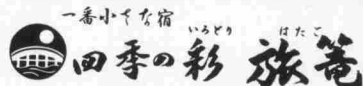 一番小さな宿
四季の彩 旅篭
いろどり はたご